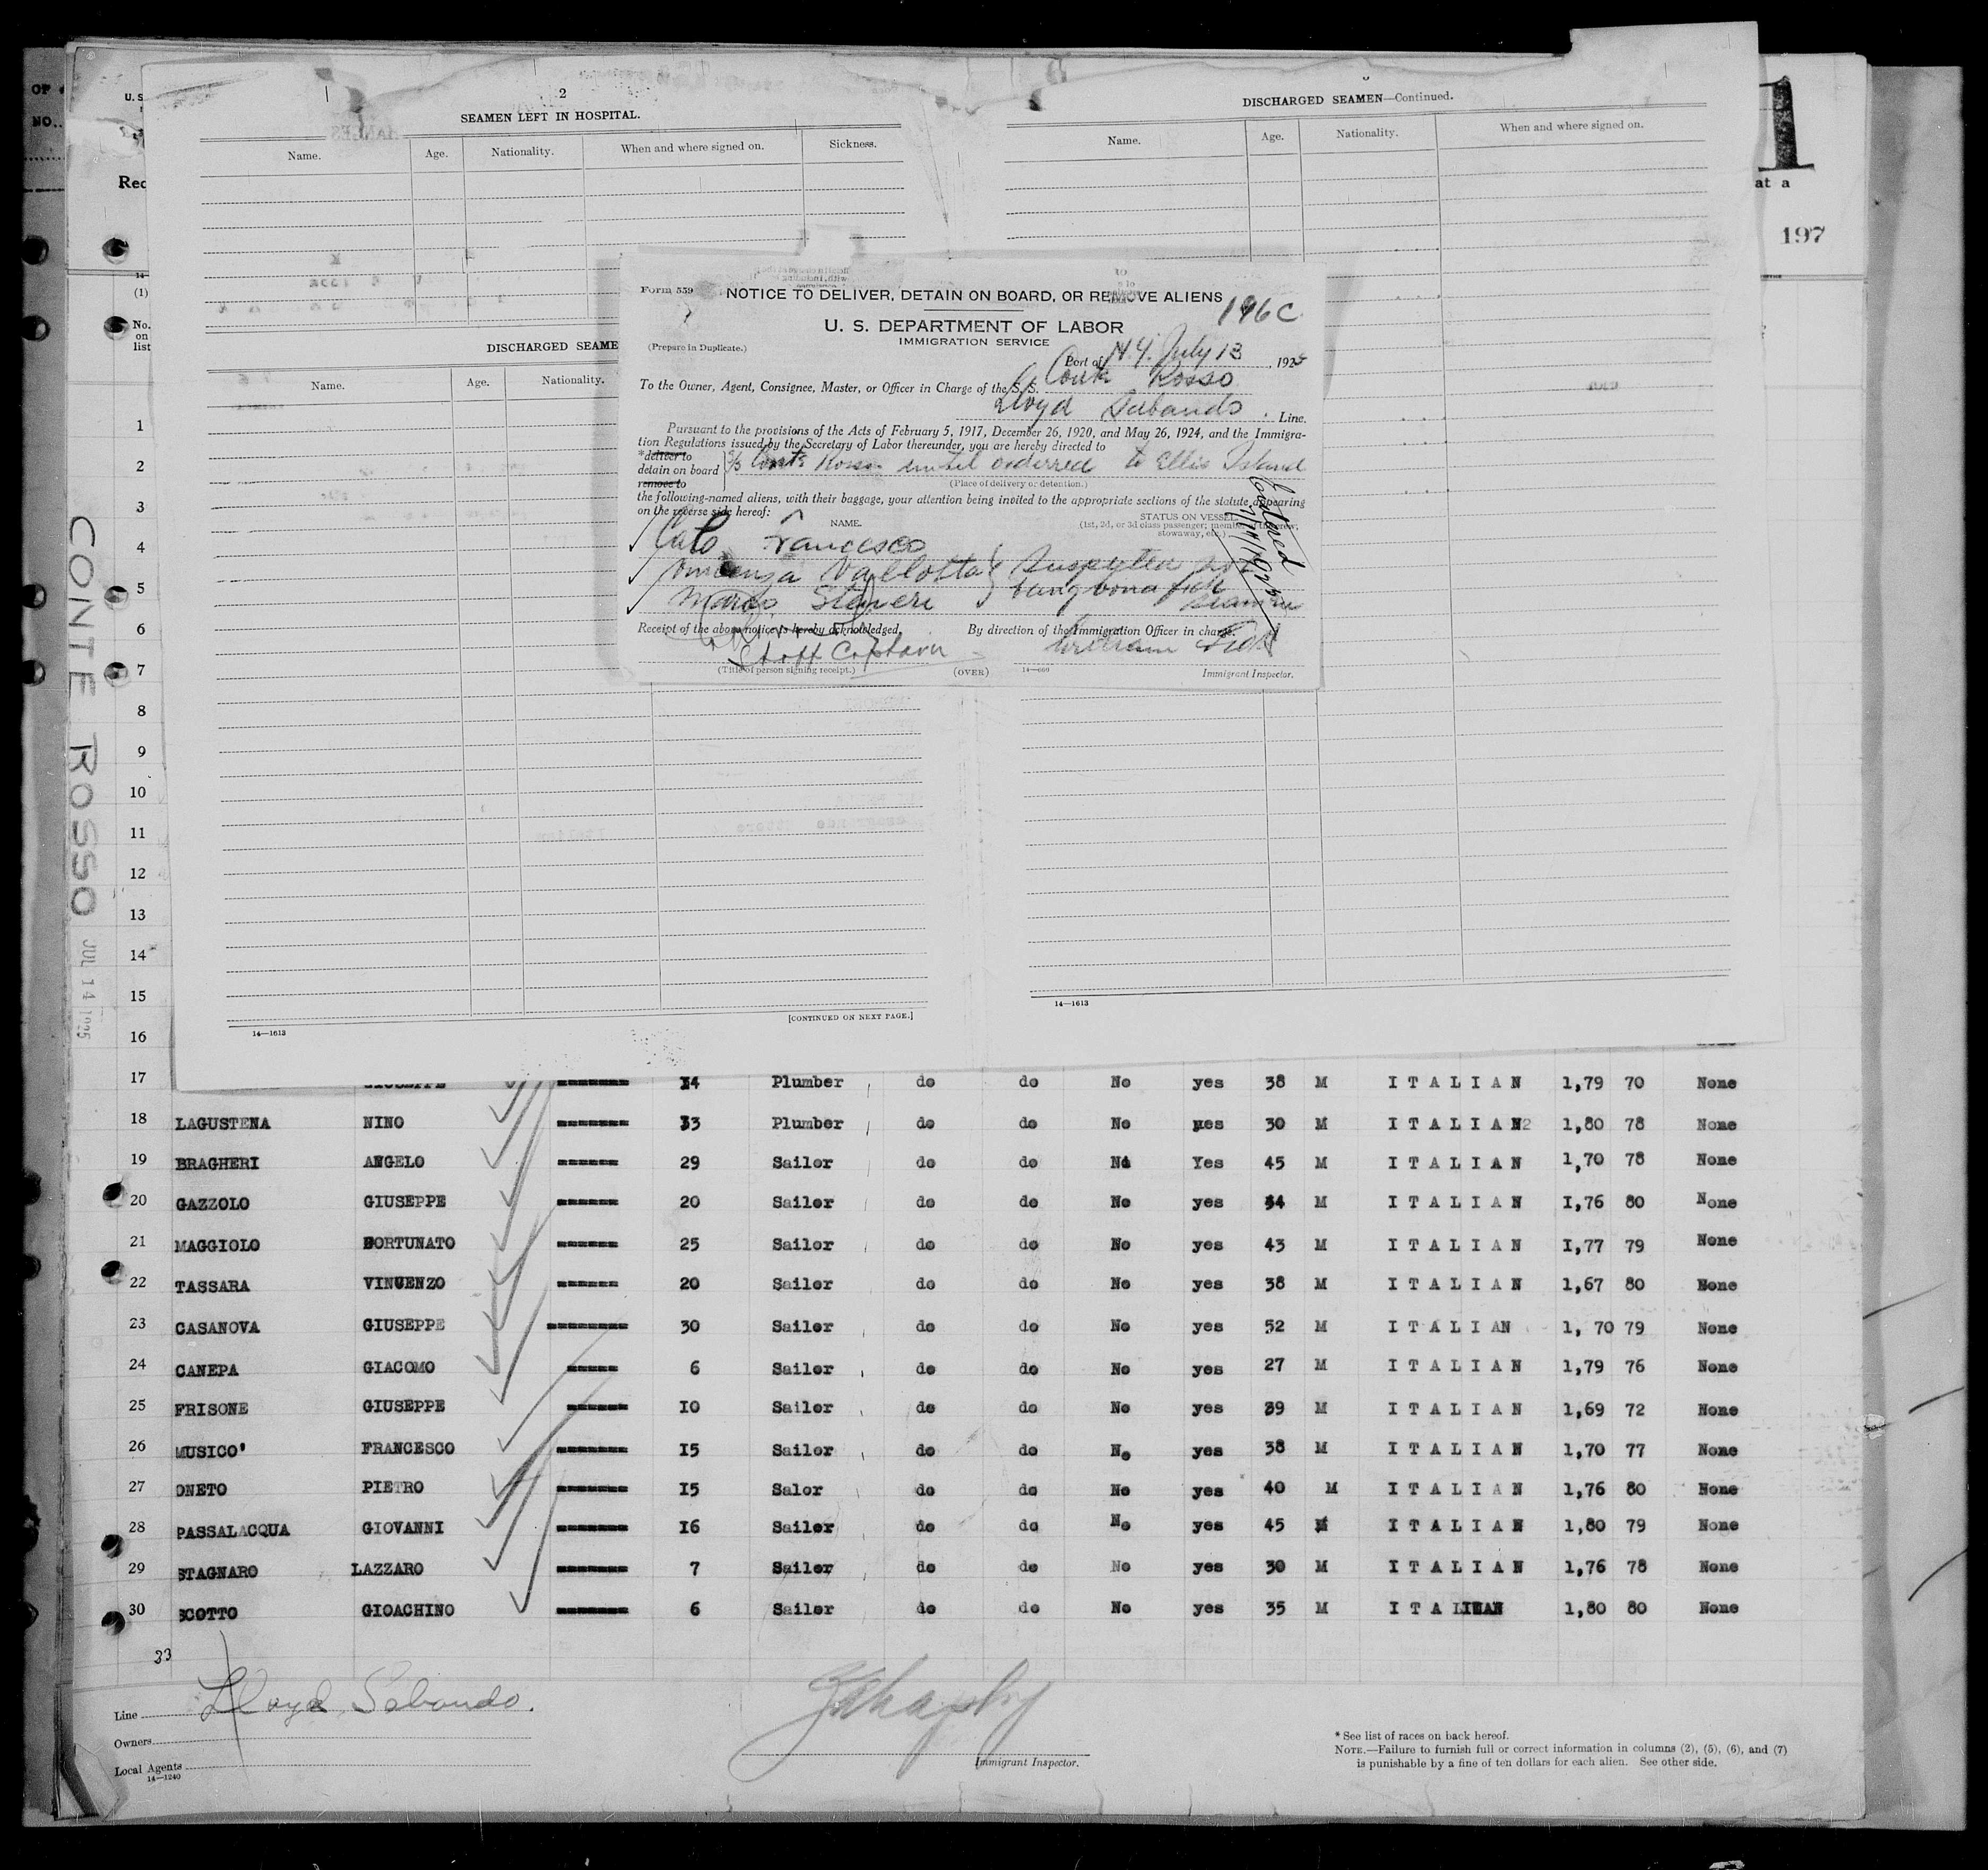 OF
NO.
U. S
Rec
14-
(1)
No.
on
list
2
SEAMEN LEFT IN HOSPITAL.
Name. Age. Nationality. When and where signed on. Sickness.
DISCHARGED SEAME
Name. Age. Nationality.
[CONTINUED ON NEXT PAGE.]
14—1613
DISCHARGED SEAMEN—Continued.
Name. Age. Nationality. When and where signed on.
14—1613
1
at a
197
Form 559
NOTICE TO DELIVER, DETAIN ON BOARD, OR REMOVE ALIENS
196 C
U. S. DEPARTMENT OF LABOR
IMMIGRATION SERVICE
(Prepare in Duplicate.)
Port of N.Y. July 13, 1925
To the Owner, Agent, Consignee, Master, or Officer in Charge of the S. S. Conte Rosso
Lloyd Sabaudo. Line.
Pursuant to the provisions of the Acts of February 5, 1917, December 26, 1920, and May 26, 1924, and the Immigra-
tion Regulations issued by the Secretary of Labor thereunder, you are hereby directed to
*deliver to
detain on board S/S Conte Rosso until ordered to Ellis Island
remove to
(Place of delivery or detention.)
the following-named aliens, with their baggage, your attention being invited to the appropriate sections of the statute appearing
on the reverse side hereof:
NAME. STATUS ON VESSEL.
(1st, 2d, or 3d class passenger; member of the crew;
stowaway, etc.)
Calo Francesco
Vincenza Vallotta Suspected not
Marco being bona fide
seamen
7/14/1925
Receipt of the above notice is hereby acknowledged. By direction of the Immigration Officer in charge.
Staff Captain William
(Title of person signing receipt.) (OVER) 14—600 Immigrant Inspector.
CONTE ROSSO JUL 14 1925
1
2
3
4
5
6
7
8
9
10
11
12
13
14
15
16
17 GIUSEPPE 14 Plumber do do No yes 38 M ITALIAN 1,79 70 None
18 LAGUSTENA NINO 33 Plumber do do No yes 30 M ITALIAN 1,80 78 None
19 BRAGHERI ANGELO 29 Sailor do do No Yes 45 M ITALIAN 1,70 78 None
20 GAZZOLO GIUSEPPE 20 Sailor do do No yes 44 M ITALIAN I,76 80 None
21 MAGGIOLO FORTUNATO 25 Sailor do do No yes 43 M ITALIAN I,77 79 None
22 TASSARA VINCENZO 20 Sailor do do No yes 38 M ITALIAN 1,67 80 None
23 CASANOVA GIUSEPPE 30 Sailor do do No yes 52 M ITALIAN 1, 70 79 None
24 CANEPA GIACOMO 6 Sailor do do No yes 27 M ITALIAN 1,79 76 None
25 FRISONE GIUSEPPE IO Sailor do do No yes 39 M ITALIAN 1,69 72 None
26 MUSICO' FRANCESCO I5 Sailor do do No yes 38 M ITALIAN 1,70 77 None
27 ONETO PIETRO I5 Salor do do No yes 40 M ITALIAN 1,76 80 None
28 PASSALACQUA GIOVANNI I6 Sailor do do No yes 45 M ITALIAN 1,80 79 None
29 STAGNARO LAZZARO 7 Sailor do do No yes 30 M ITALIAN 1,76 78 None
30 SCOTTO GIOACHINO 6 Sailor do do No yes 35 M ITALIAN 1,80 80 None
33
Line Lloyd Sabaudo.
Owners
Local Agents
14—1240
Immigrant Inspector.
* See list of races on back hereof.
NOTE.—Failure to furnish full or correct information in columns (2), (5), (6), and (7)
is punishable by a fine of ten dollars for each alien. See other side.